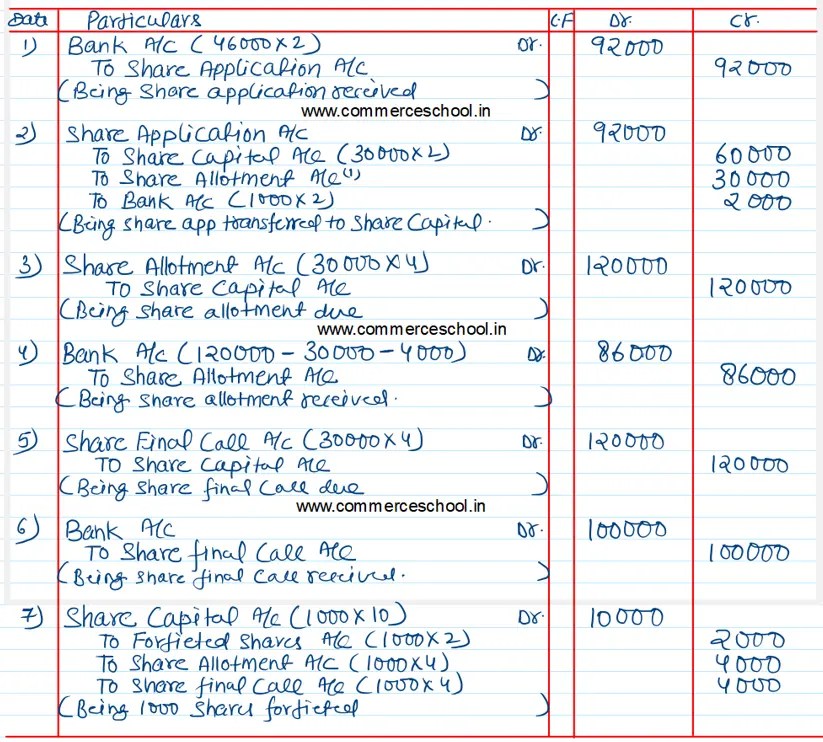 Date Particulars L.F Dr. Cr.
1) Bank A/c (46000X2) Dr. 92000
To Share Application A/c 92000
(Being Share application received )
www.commerceschool.in
2) Share Application A/c Dr. 92000
To Share Capital A/c (30000X2) 60000
To Share Allotment A/c(1) 30000
To Bank A/c (1000X2) 2000
(Being share app transferred to Share Capital. )
3) Share Allotment A/c (30000X4) Dr. 120000
To Share Capital A/c 120000
(Being Share allotment due )
www.commerceschool.in
4) Bank A/c (120000-30000-4000) Dr. 86000
To Share Allotment A/c 86000
(Being share allotment received. )
5) Share Final Call A/c (30000X4) Dr. 120000
To Share Capital A/c 120000
(Being Share final Call due )
www.commerceschool.in
6) Bank A/c Dr. 100000
To Share final Call A/c 100000
(Being share final Call received. )
7) Share Capital A/c (1000X10) Dr. 10000
To Forfieted Shares A/c (1000X2) 2000
To Share Allotment A/c (1000X4) 4000
To Share final Call A/c (1000X4) 4000
(Being 1000 Shares forfieted )